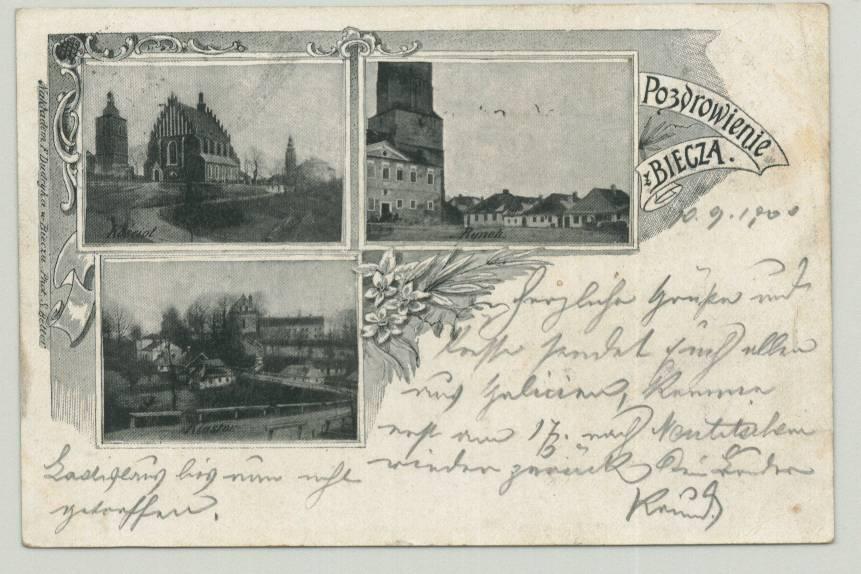 Pozdrowienie
z BIECZA.
Kościoł
Rynek
Klasztor
10.9.1900
Herzliche Grüße und
Küsse sendet Euch allen
aus Galicien, Komme
erst am 17. nach Neutitschein
wieder zurück Dein Bruder
Ladislaus bis nun nicht
getroffen.